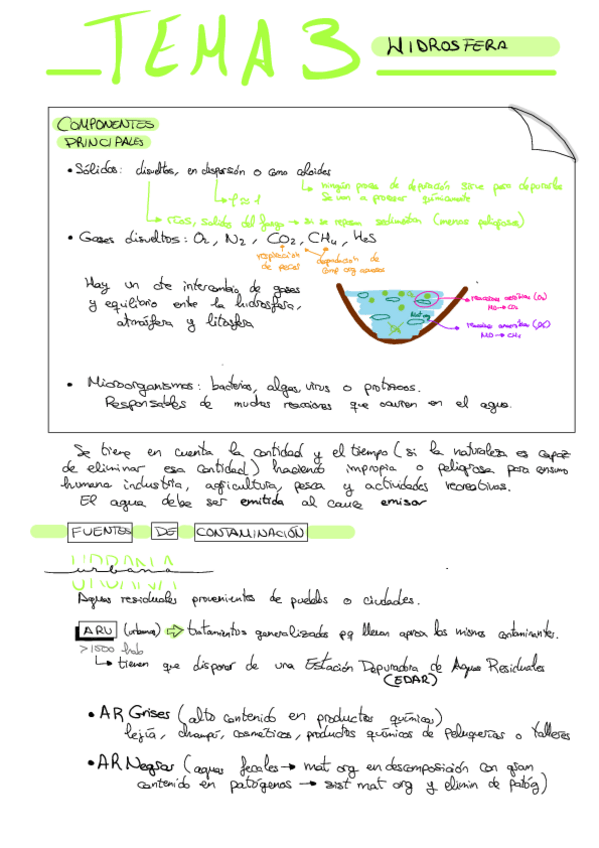 TEMA 3 HIDROSFERA
COMPONENTES
PRINCIPALES
• Sólidos: disueltos, en dispersión o como coloides
ningún proceso de depuración sirve para depurarlos
Se van a procesar químicamente
ρ ≈ 1
→ si se reposan sedimentan (menos peligrosos)
• Gases disueltos: O2, N2, CO2, CH4, H2S
respiración
de peces
degradación de
comp org
Hay un cte intercambio de gases
y equilibrio entre la hidrosfera,
atmósfera y litosfera
Mat org
MO → CO2
MO → CH4
• Microorganismos: bacterias, algas, virus o protozoos.
Responsables de muchas reacciones que ocurren en el agua.
Se tiene en cuenta la cantidad y el tiempo (si la naturaleza es capaz
de eliminar esa cantidad) haciendo impropia o peligrosa para consumo
humano industria, agricultura, pesca y actividades recreativas.
El agua debe ser emitida al cauce emisor
FUENTES DE CONTAMINACIÓN
URBANA
urbana
Aguas residuales provenientes de pueblos o ciudades.
ARU (urbanas) ⇒ tratamientos generalizados pq llevan aprox los mismos contaminantes.
>1500 hab
↳ tienen que disponer de una Estación Depuradora de Aguas Residuales
(EDAR)
• AR Grises (alto contenido en productos químicos)
lejía, champú, cosméticos, productos químicos de peluquerías o talleres
• AR Negras (aguas fecales → mat org en descomposición con gran
contenido en patógenos → sist mat org y elimin de patóg)